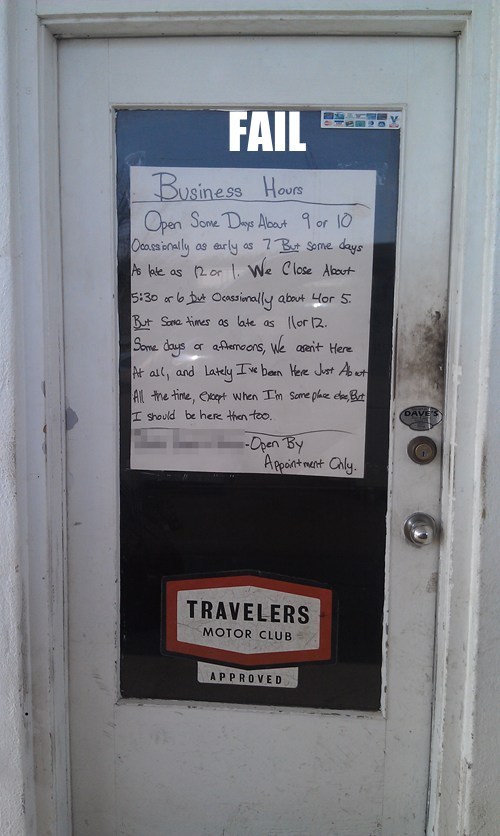 FAIL
Business Hours
Open Some Days About 9 or 10
Ocassionally as early as 7 But some days
As late as 12 or 1. We Close About
5:30 or 6 but Ocassionally about 4 or 5.
But Some times as late as 11 or 12.
Some days or afternoons, We aren't Here
At all, and Lately I've been Here Just About
All the time, except when I'm someplace else, But
I should be here then too.
-Open By
Appointment Only.
DAVE'S
TRAVELERS
MOTOR CLUB
APPROVED